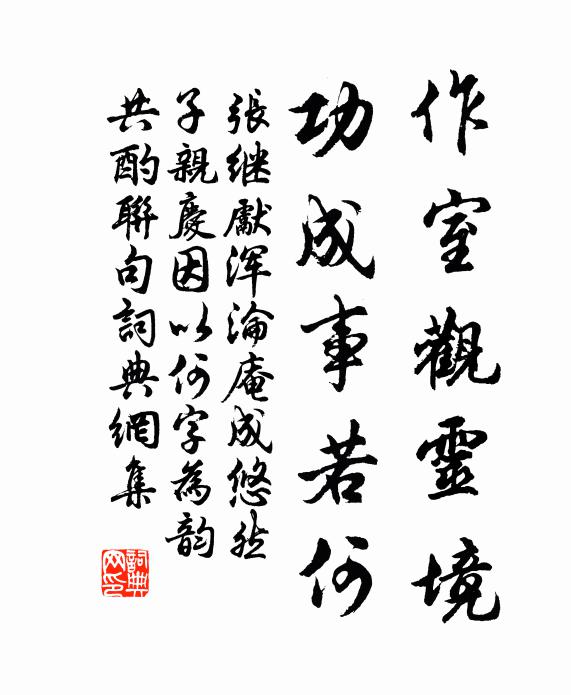 作室觀靈境
功成事若何
張继獻渾淪庵成悠然
子親慶因以何字為韵
共酌聯句詞典網集
詞典网印